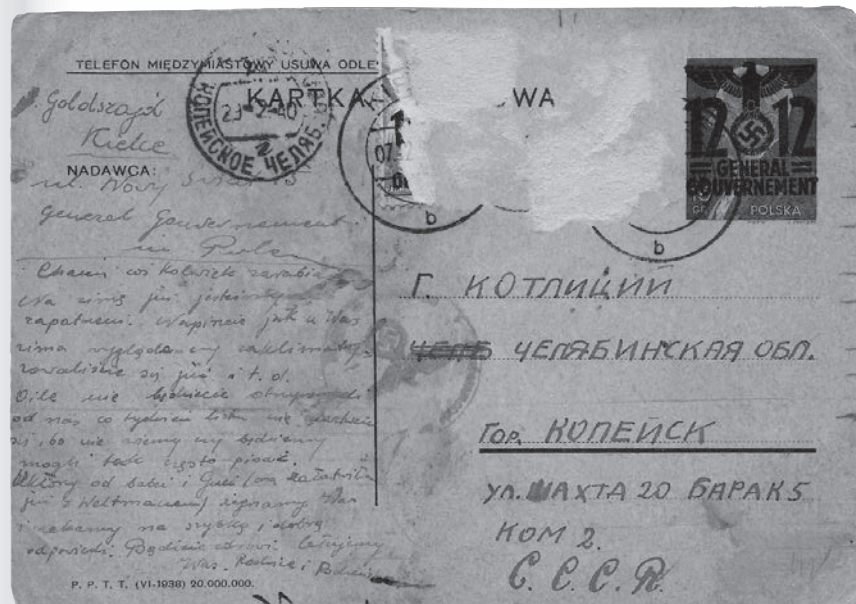 TELEFON MIĘDZYMIASTOWY USUWA ODLE
KARTKA WA
КОПЕЙСКОЕ ЧЕЛЯБ.
29-2-40
12 12
GENERAL
GOUVERNEMENT
POLSKA
Goldszajd
Kielce
NADAWCA:
ul. Nowy Świat
General Gouvernement
in Polen
b
b
Chaim coś kolwiek zarabia
Na zimę już jesteśmy
zapatrzeni. Napiszcie jak u Was
zima wygląda czy zaklimaty-
zowaliście się już i t. d.
O ile nie będziecie otrzymywali
od nas co tydzień listu nie
się, bo nie wiemy czy będziemy
mogli tak często pisać.
Ukłony od babci i załatwiła
już z Weltmanem żegnamy Was
i czekamy na szybką i dobrą
odpowiedź. Bądźcie zdrowi Całujemy
Was. Rodzice i
Г. КОТЛИЦИЙ
ЧЕЛЯБИНСКАЯ ОБЛ.
ГОР. КОПЕЙСК
УЛ. ШАХТА 20 БАРАК 5
КОМ 2.
С. С. С. R.
P. P. T. T. (VI-1938) 20.000.000.